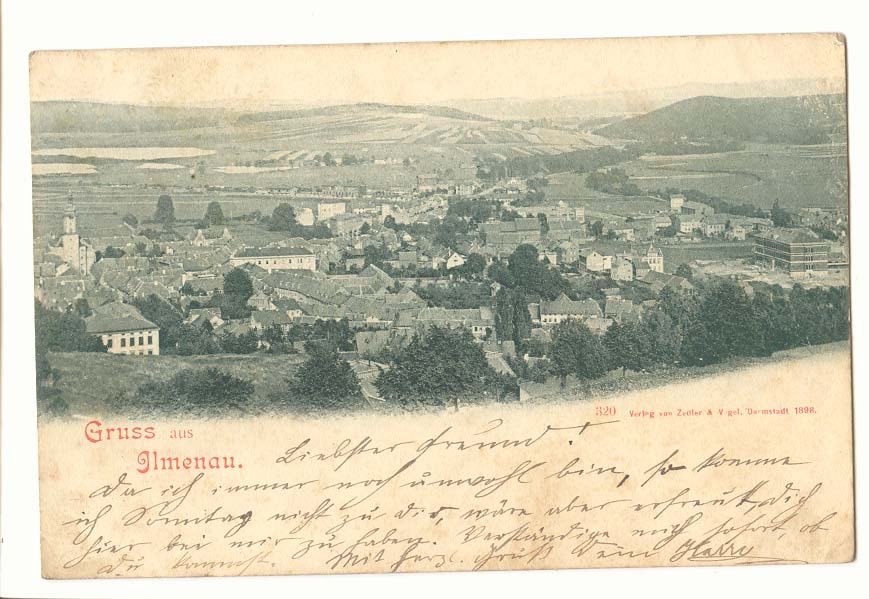 320 Verlag von Zedler & Vogel, Darmstadt 1898.
Gruss aus
Ilmenau.
Liebster Freund!
Da ich immer noch unwohl bin, so komme
ich Sonntag nicht zu dir, wäre aber erfreut, dich
hier bei mir zu haben. Verständige mich sofort, ob
du kommst. Mit herzl. Gruß Dein